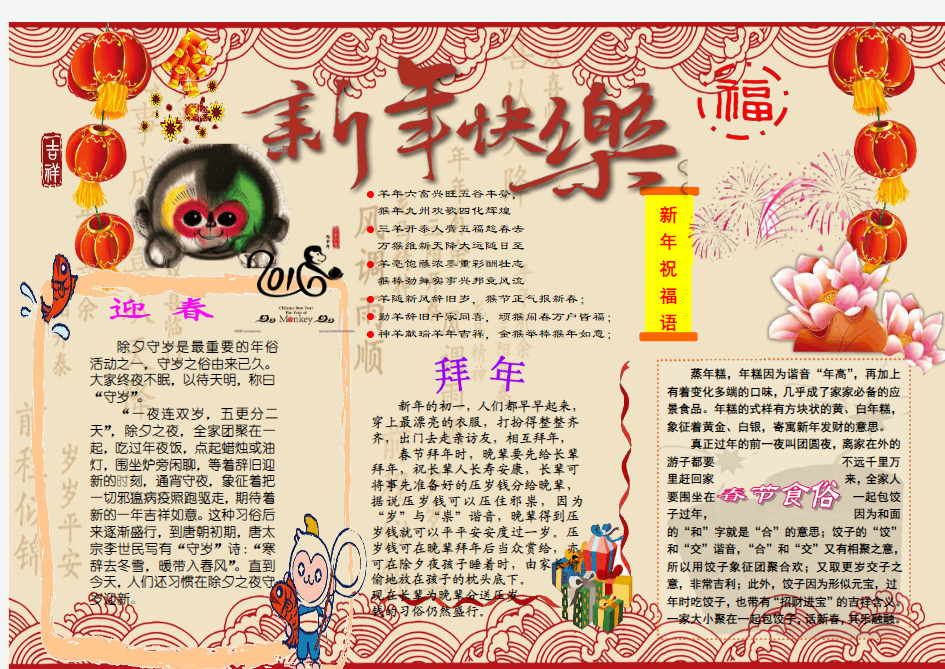 新年快樂
福
吉祥
羊年六畜兴旺五谷丰登,
猴年九州欢歌四化辉煌
三羊开泰人膺五福趁春去
万猴维新天降大运随日至
羊毫饱蘸浓墨重彩酬壮志
猴棒劲舞实事兴邦竞风流
羊随新风辞旧岁, 猴节正气报新春;
勤羊辞旧千家同喜, 顽猴闹春万户皆福;
神羊献瑞羊年吉祥, 金猴举棒猴年如意;
新年祝福语
2016
Chinese New Year
The Year of
Monkey
迎 春
除夕守岁是最重要的年俗
活动之一,守岁之俗由来已久。
大家终夜不眠,以待天明,称曰
“守岁”。
“一夜连双岁,五更分二
天”,除夕之夜,全家团聚在一
起,吃过年夜饭,点起蜡烛或油
灯,围坐炉旁闲聊,等着辞旧迎
新的时刻,通宵守夜,象征着把
一切邪瘟病疫照跑驱走,期待着
新的一年吉祥如意。这种习俗后
来逐渐盛行,到唐朝初期,唐太
宗李世民写有“守岁”诗:“寒
辞去冬雪,暖带入春风”。直到
今天,人们还习惯在除夕之夜守
岁迎新。
拜 年
新年的初一,人们都早早起来,
穿上最漂亮的衣服,打扮得整整齐
齐,出门去走亲访友,相互拜年,
春节拜年时,晚辈要先给长辈
拜年,祝长辈人长寿安康,长辈可
将事先准备好的压岁钱分给晚辈,
据说压岁钱可以压住邪祟,因为
“岁”与“祟”谐音,晚辈得到压
岁钱就可以平平安安度过一岁。压
岁钱可在晚辈拜年后当众赏给,亦
可在除夕夜孩子睡着时,由家长偷
偷地放在孩子的枕头底下。
现在长辈为晚辈分送压岁
钱的习俗仍然盛行。
蒸年糕,年糕因为谐音“年高”,再加上
有着变化多端的口味,几乎成了家家必备的应
景食品。年糕的式样有方块状的黄、白年糕,
象征着黄金、白银,寄寓新年发财的意思。
真正过年的前一夜叫团圆夜,离家在外的
游子都要不远千里万
里赶回家来,全家人
要围坐在一起包饺
子过年,因为和面
的“和”字就是“合”的意思;饺子的“饺”
和“交”谐音,“合”和“交”又有相聚之意,
所以用饺子象征团聚合欢;又取更岁交子之
意,非常吉利;此外,饺子因为形似元宝,过
年时吃饺子,也带有“招财进宝”的吉祥含义。
一家大小聚在一起包饺子,话新春,其乐融融。
春节食俗
风调雨顺
岁岁平安
前程似锦